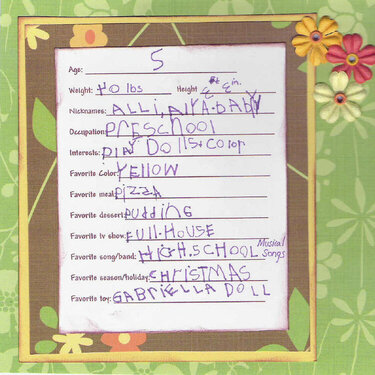 Age: 5
Weight: 40 lbs Height 3 ft 3 in.
Nicknames: ALLi, AiYA-BABY
Occupation: PRESCHOOl
Interests: PlAY DOllS+COlOr
Favorite Color: YELLOW
Favorite meal: PiZZA
Favorite dessert: PUDDiNG
Favorite tv show: FUll-HOUSE
Favorite song/band: HiGH.SCHOOL Musical Songs
Favorite season/holiday: CHRiSTMAS
Favorite toy: GABRiELLA DOLL